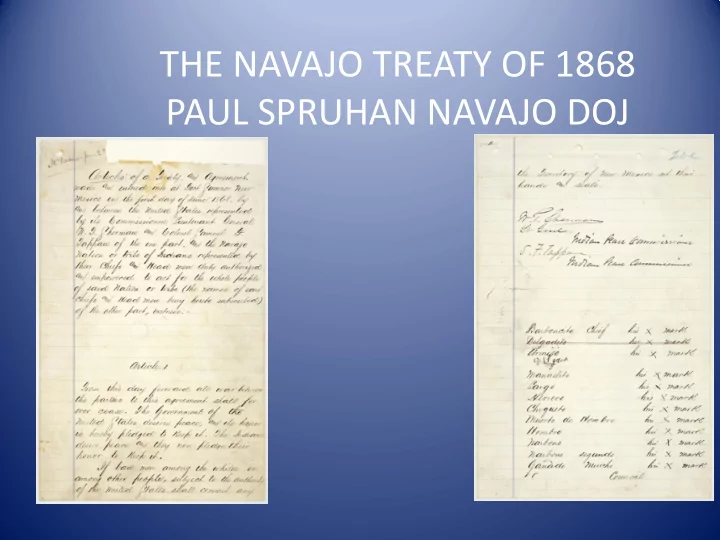 THE NAVAJO TREATY OF 1868
PAUL SPRUHAN NAVAJO DOJ
Articles of a Treaty and Agreement
made and entered into at Fort Sumner New
Mexico on the first day of June 1868, by
and between the United States represented
by its Commissioners Lieutenant General
W. T. Sherman and Colonel Samuel F.
Tappan of the one part, and the Navajo
Nation or tribe of Indians represented by
their Chiefs and Head men duly authorized
and empowered to act for the whole people
of said Nation or tribe (the names of said
Chiefs and Head men being hereto subscribed)
of the other part, witness:
Article 1
From this day forward all war between
the parties to this agreement shall for
ever cease. The Government of the
United States desires peace, and its honor
is hereby pledged to keep it. The Indians
desire peace and they now pledge their
honor to keep it.
If bad men among the whites or
among other people, subject to the authority
of the United States shall commit any
the Territory of New Mexico set their
hands and seals.
W. T. Sherman
Lt. Genl.
Indian Peace Commissioner
S. F. Tappan
Indian Peace Commissioner
Barboncito Chief his x mark
Delgadito his x mark
Armijo his x mark
Manuelito his x mark
Largo his x mark
Herrero his x mark
Chiqueto his x mark
Muerto de Hombre his x mark
Hombro his x mark
Narbono his x mark
Narbono segundo his x mark
Ganado Mucho his x mark
Council